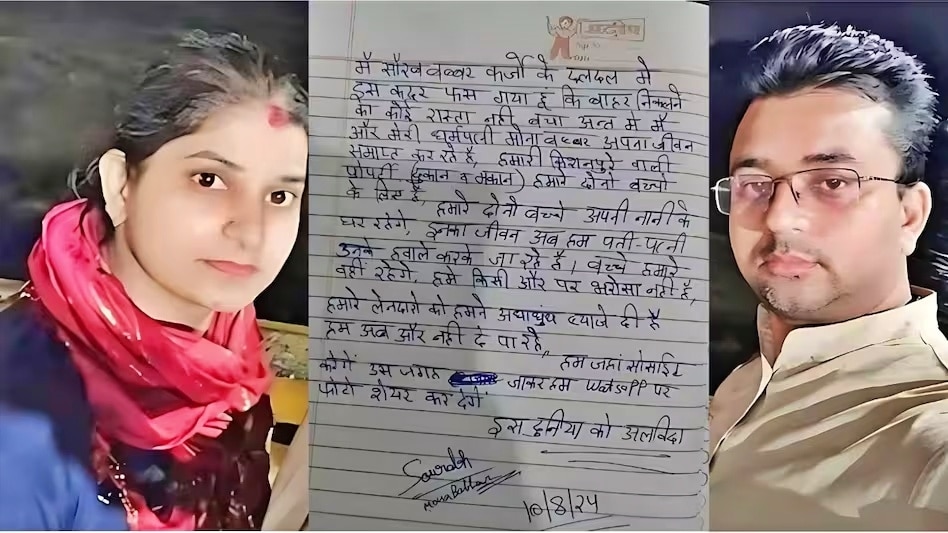 मै सौरब बब्बर कर्जो के दलदल मे
इस कदर फस गया हूं कि बाहर निकलने
का कोई रास्ता नही बचा अन्त मे मैं
और मेरी धर्मपत्नी मोना बब्बर अपना जीवन
समाप्त कर रहे है, हमारी किशनपुरे वाली
प्रोपर्टी (दुकान व मकान) हमारे दोनो बच्चो
के लिए है, हमारे दोनो बच्चे अपनी नानी के
घर रहेगे, इनका जीवन अब हम पती-पत्नी
उनके हवाले करके जा रहे है। बच्चे हमारे
वही रहेगे, हमे किसी और पर भरोसा नही है,
हमारे लेनदारो को हमने अंधाधुंध ब्याजे दी है
हम अब और नही दे पा रहे, हम जहां सोसाईट
करेगें उस जगह जाकर हम Watsapp पर
फोटो शेयर कर देगे
इस दुनिया को अलविदा
Saurabh
Mona Babbar
10/8/24